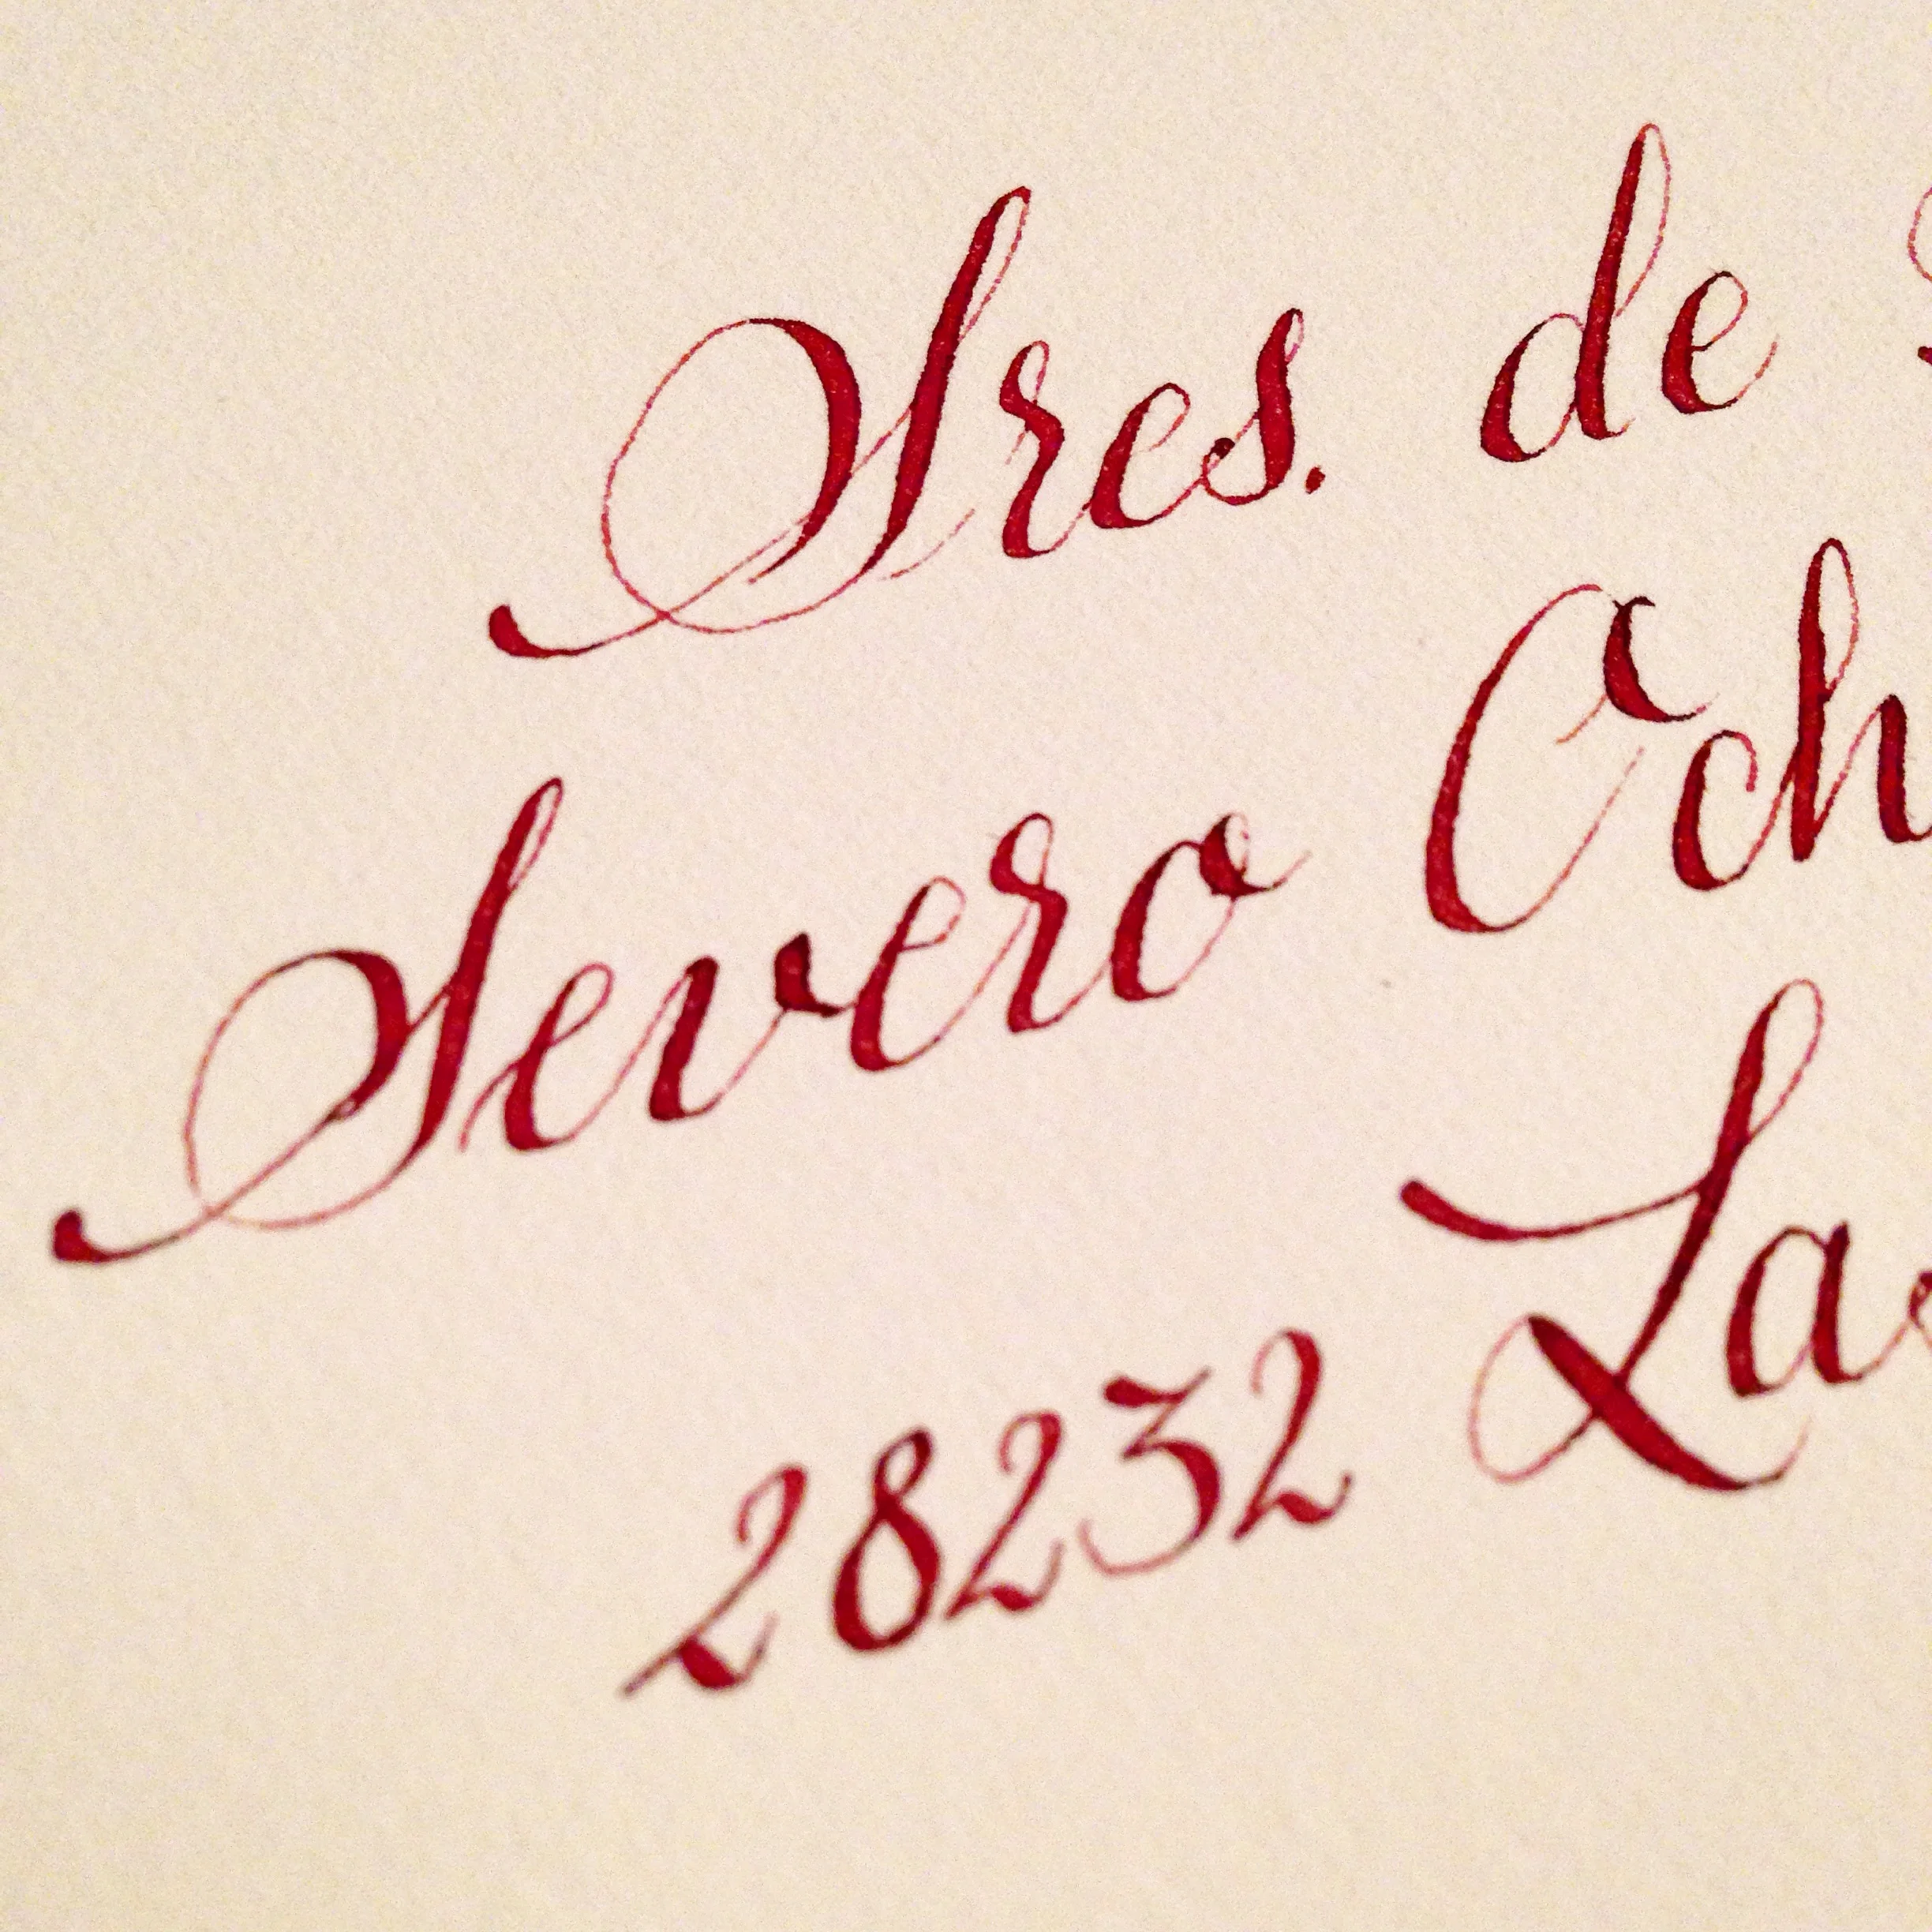 Sres. de
Severo Och
28232 Las